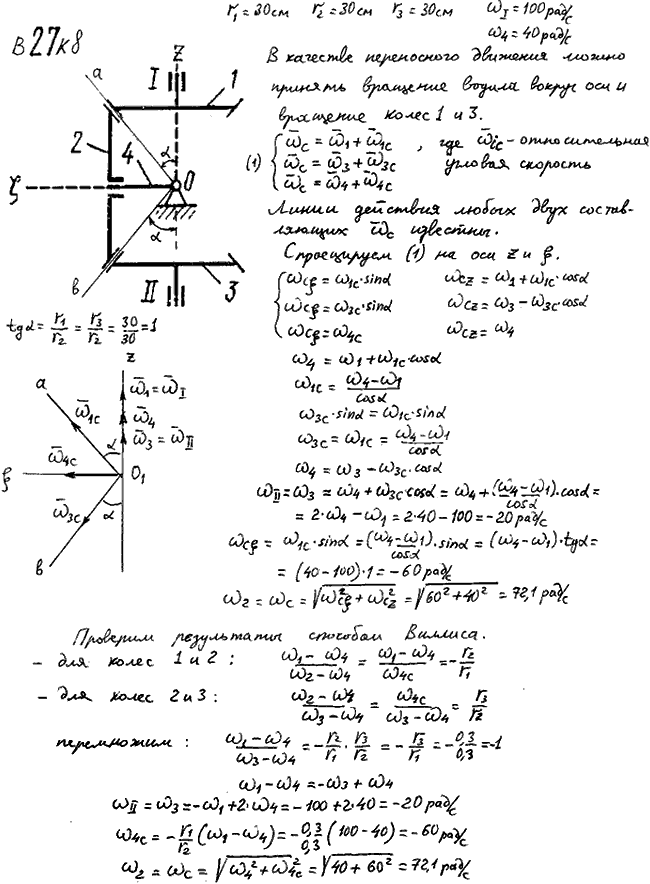 r₁ = 30см r₂ = 30см r₃ = 30см ω_I = 100 рад/с
ω₄ = 40 рад/с
В 27к8
z
a
I
1
2
4
α
O
ξ
α
в
II
3
В качестве переносного движения можно
принять вращение водила вокруг оси и
вращение колес 1 и 3.
(1) { ω̄c = ω̄₁ + ω̄₁c , где ω̄ic - относительная
ω̄c = ω̄₃ + ω̄₃c угловая скорость
ω̄c = ω̄₄ + ω̄₄c
Линии действия любых двух состав-
ляющих ω̄c известны.
Спроецируем (1) на оси z и ξ.
{ ωcξ = ω₁c·sinα ωcz = ω₁ + ω₁c·cosα
ωcξ = ω₃c·sinα ωcz = ω₃ - ω₃c·cosα
ωcξ = ω₄c ωcz = ω₄
tgα = r₁/r₂ = r₃/r₂ = 30/30 = 1
z
a
ω̄₁ = ω̄_I
ω̄₁c
ω̄₄
α
ω̄₃ = ω̄_II
ω̄₄c
ξ
O₁
ω̄₃c
α
в
ω₄ = ω₁ + ω₁c·cosα
ω₁c = (ω₄-ω₁)/cosα
ω₃c·sinα = ω₁c·sinα
ω₃c = ω₁c = (ω₄-ω₁)/cosα
ω₄ = ω₃ - ω₃c·cosα
ω_II = ω₃ = ω₄ + ω₃c·cosα = ω₄ + (ω₄-ω₁)/cosα·cosα =
= 2·ω₄ - ω₁ = 2·40 - 100 = -20 рад/с
ωcξ = ω₁c·sinα = (ω₄-ω₁)/cosα·sinα = (ω₄-ω₁)·tgα =
= (40-100)·1 = -60 рад/с
ω₂ = ωc = √(ω²cξ + ω²cz) = √(60² + 40²) = 72,1 рад/с
Проверим результаты способом Виллиса.
- для колес 1 и 2 : (ω₁-ω₄)/(ω₂-ω₄) = (ω₁-ω₄)/ω₄c = -r₂/r₁
- для колес 2 и 3 : (ω₂-ω₄)/(ω₃-ω₄) = ω₄c/(ω₃-ω₄) = r₃/r₂
перемножим : (ω₁-ω₄)/(ω₃-ω₄) = -r₂/r₁·r₃/r₂ = -r₃/r₁ = -0,3/0,3 = -1
ω₁ - ω₄ = -ω₃ + ω₄
ω_II = ω₃ = -ω₁ + 2·ω₄ = -100 + 2·40 = -20 рад/с
ω₄c = -r₁/r₂(ω₁-ω₄) = -0,3/0,3(100-40) = -60 рад/с
ω₂ = ωc = √(ω₄² + ω²₄c) = √(40 + 60²) = 72,1 рад/с